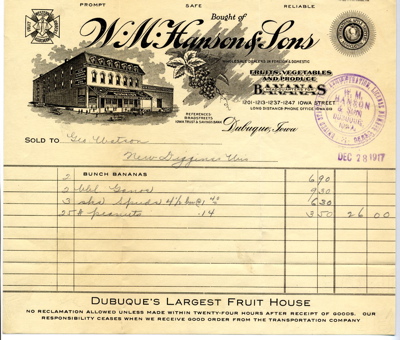 PROMPT SAFE RELIABLE
Bought of
W. M. Hanson & Sons
WHOLESALE DEALERS IN FOREIGN & DOMESTIC
FRUITS, VEGETABLES
AND PRODUCE
BANANAS
1201-1213-1237-1247 IOWA STREET
LONG DISTANCE PHONE OFFICE
REFERENCES,
BRADSTREETS,
IOWA TRUST & SAVINGS BANK
Dubuque, Iowa
W. M.
HANSON
& SONS
DUBUQUE,
IOWA.
DEC 28 1917
SOLD TO Geo Watson
New Diggings Wis
2 BUNCH BANANAS 6.90
2 9.30
3 Spuds 6.30
25 # peanuts .14 3.50 26 00
DUBUQUE'S LARGEST FRUIT HOUSE
NO RECLAMATION ALLOWED UNLESS MADE WITHIN TWENTY-FOUR HOURS AFTER RECEIPT OF GOODS. OUR
RESPONSIBILITY CEASES WHEN WE RECEIVE GOOD ORDER FROM THE TRANSPORTATION COMPANY